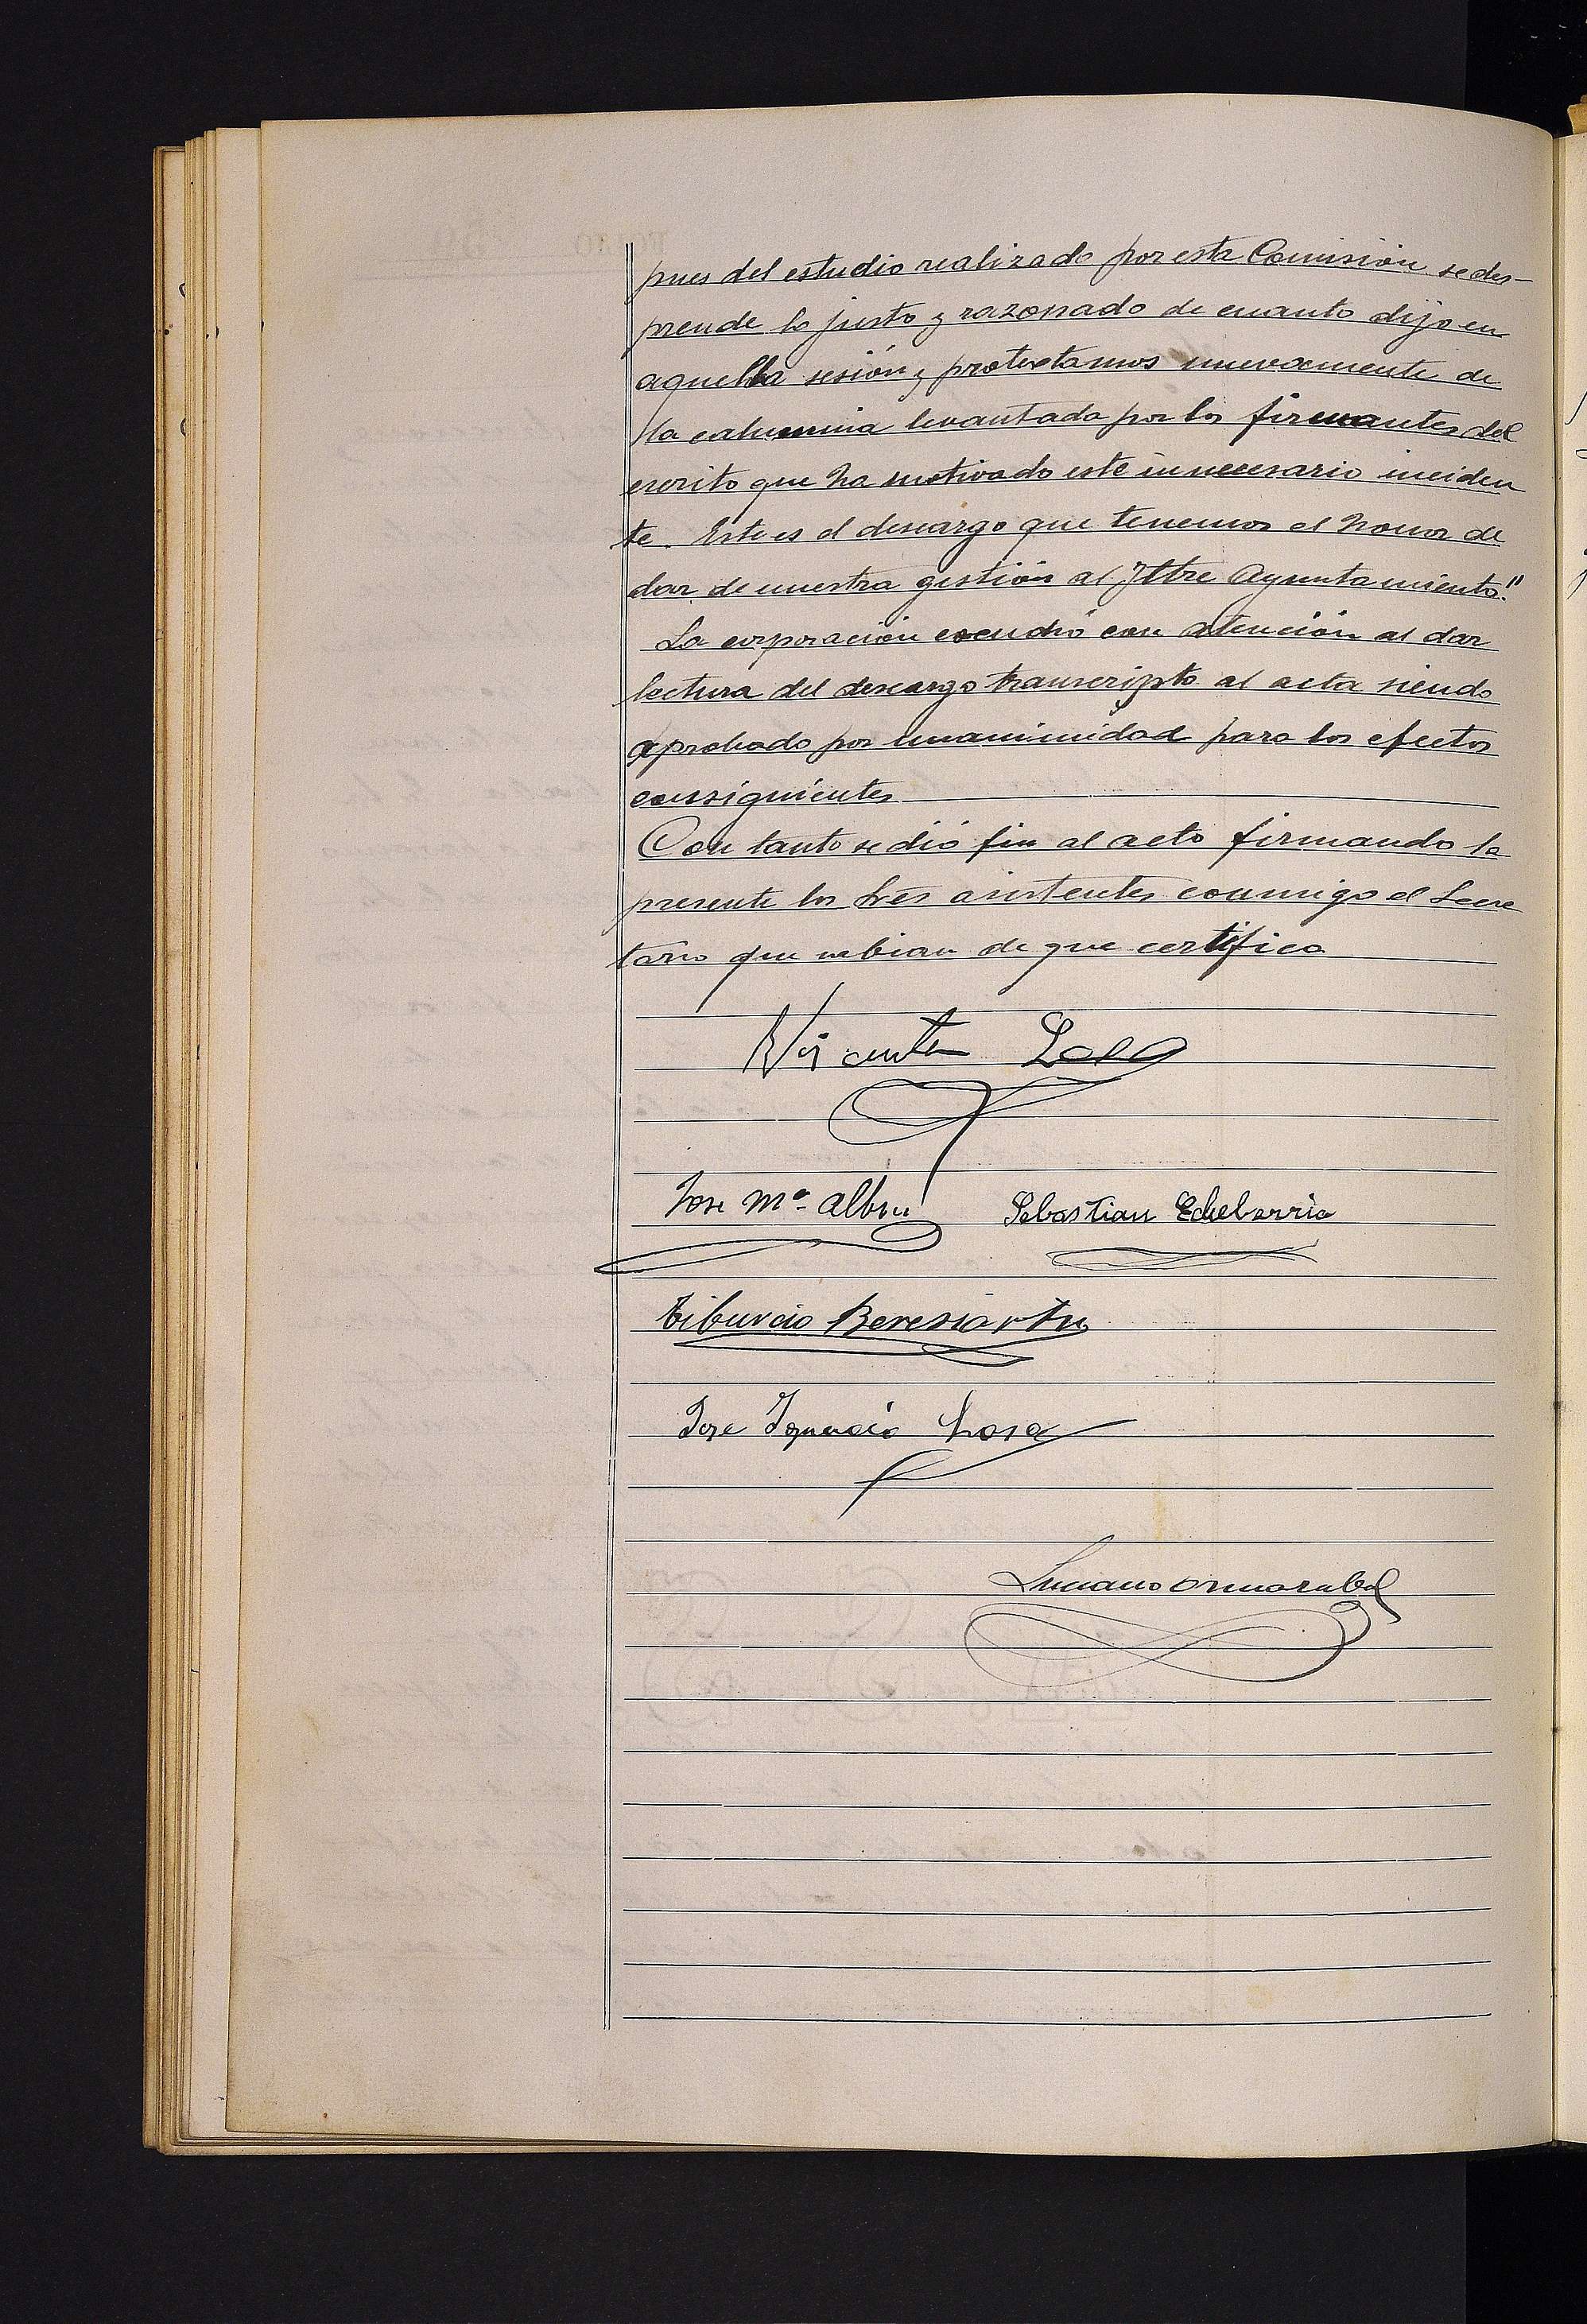 pues del estudio realizado por esta Comisión se des-
prende lo justo y razonado de cuanto dijo en
aquella sesión y protestamos nuevamente de
la calumnia levantada por los firmantes del
escrito que ha motivado este innecesario inciden
te. Este es el descargo que tenemos el honor de
dar de nuestra gestión al Iltre Ayuntamiento."
La corporación escuchó con atención al dar
lectura del descargo transcripto al acta siendo
aprobado por unanimidad para los efectos
consiguientes
Con tanto se dió fin al acto firmando la
presente los Sres asistentes conmigo el Secre
tario que sabian de que certifico
Vicente Lasa
Jose Mª Albisu Sebastian Echeberria
Tiburcio Beresiartu
Jose Ignacio Lasa
Luciano